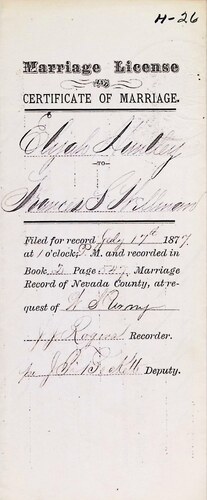 H-26
Marriage License
AND
CERTIFICATE OF MARRIAGE.
Elijah
TO
Frances S.
Filed for record July 17th 1877,
at 1 o'clock, P. M. and recorded in
Book 2 Page Marriage
Record of Nevada County, at re-
quest of
Rogers Recorder.
per J. Deputy.